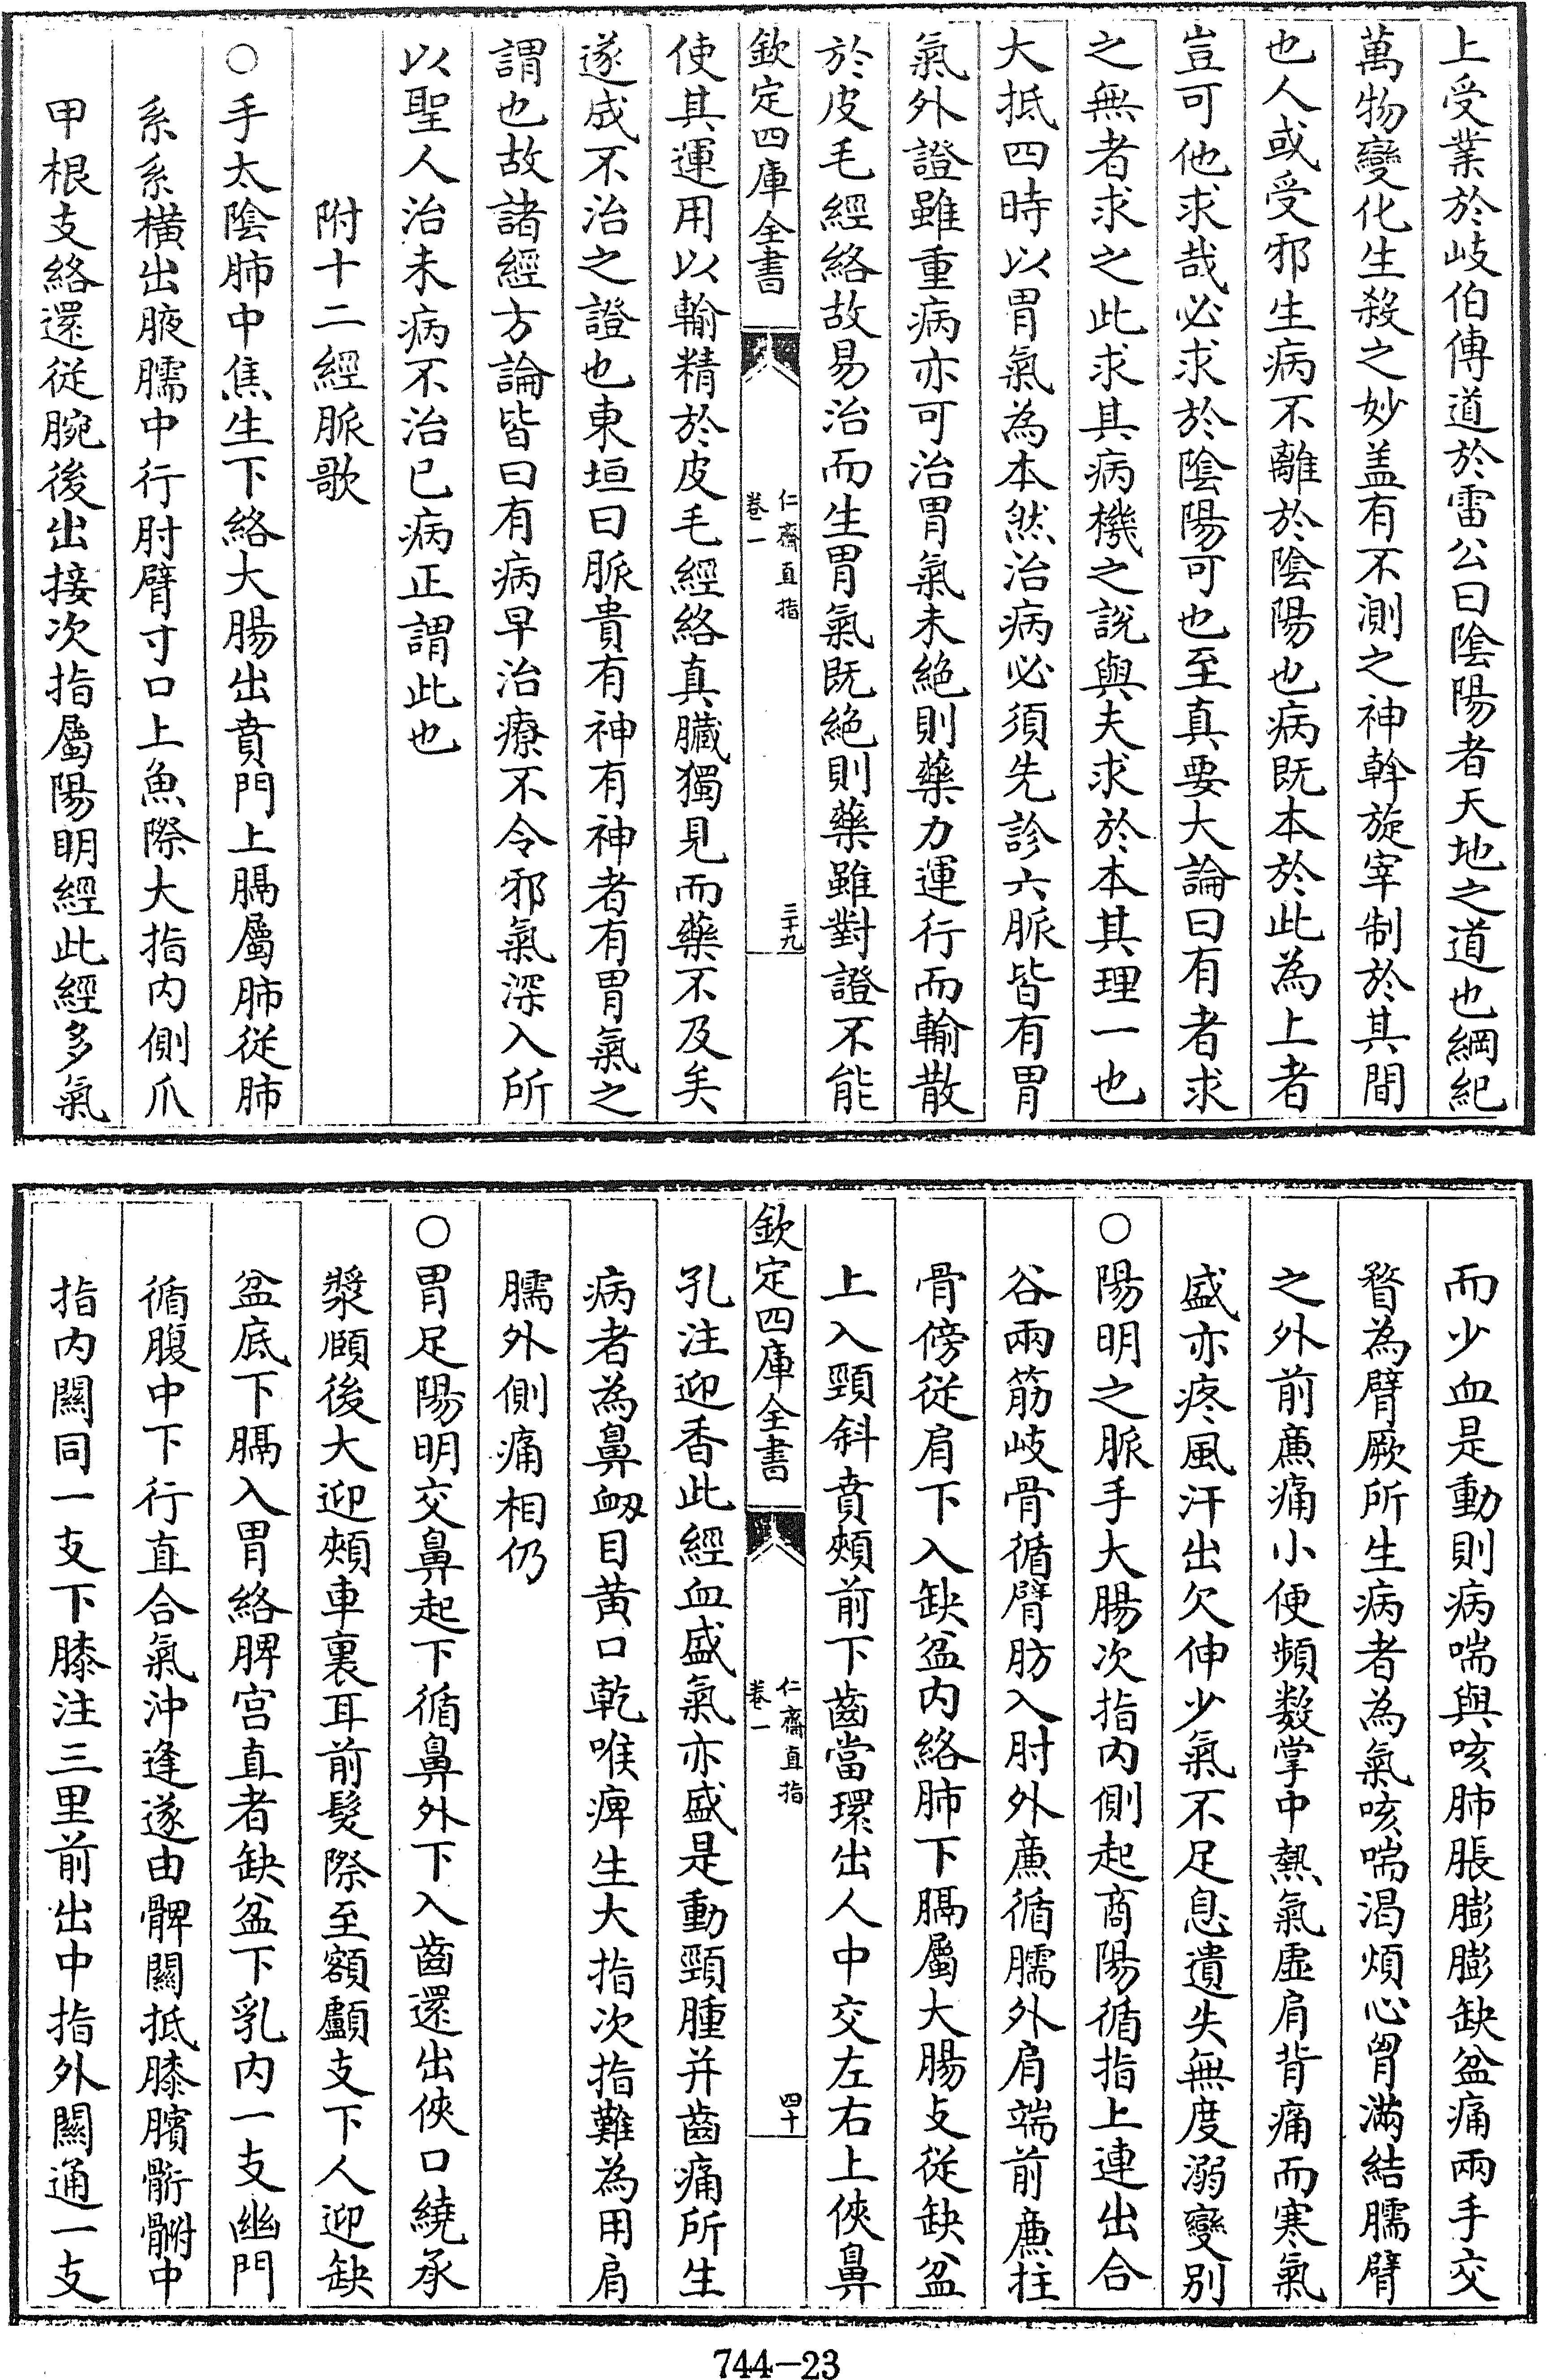 上受業於岐伯傳道於雷公曰隂陽者天地之道也綱紀
萬物變化生殺之妙盖有不測之神斡旋宰制於其間
也人或受邪生病不離於隂陽也病既本於此為上者
豈可他求哉必求於隂陽可也至真要大論曰有者求
之無者求之此求其病機之說與夫求於本其理一也
大抵四時以胃氣為本然治病必須先診六脈皆有胃
氣外證雖重病亦可治胃氣未絶則藥力運行而輸散
於皮毛經絡故易治而生胃氣既絶則藥雖對證不能
欽定四庫全書
仁齋直指
卷一
三十九
使其運用以輸精於皮毛經絡真臓獨見而藥不及矣
遂成不治之證也東垣曰脈貴有神有神者有胃氣之
謂也故諸經方論皆曰有病早治療不令邪氣深入所
以聖人治未病不治已病正謂此也
附十二經脈歌
○手太隂肺中焦生下絡大腸出賁門上膈屬肺從肺
系系横出腋臑中行肘臂寸口上魚際大指内側爪
甲根支絡還從腕後出接次指屬陽明經此經多氣
而少血是動則病喘與咳肺脹膨膨缺盆痛兩手交
瞀為臂厥所生病者為氣咳喘渴煩心胷滿結臑臂
之外前亷痛小便頻數掌中熱氣虛肩背痛而寒氣
盛亦疼風汗出欠伸少氣不足息遺失無度溺變别
○陽明之脈手大腸次指内側起商陽循指上連出合
谷兩筋岐骨循臂肪入肘外亷循臑外肩端前亷拄
骨傍從肩下入缺盆内絡肺下膈屬大腸支從缺盆
上入頸斜賁頰前下齒當環出人中交左右上俠鼻
欽定四庫全書
仁齋直指
卷一
四十
孔注迎香此經血盛氣亦盛是動頸腫并齒痛所生
病者為鼻衂目黄口乾喉痺生大指次指難為用肩
臑外側痛相仍
○胃足陽明交鼻起下循鼻外下入齒還出俠口繞承
漿頤後大迎頰車裏耳前髮際至額顱支下人迎缺
盆底下膈入胃絡脾宫直者缺盆下乳内一支幽門
循腹中下行直合氣沖逢遂由髀關抵膝臏䯒䯋中
指内關同一支下膝注三里前出中指外關通一支
744－23